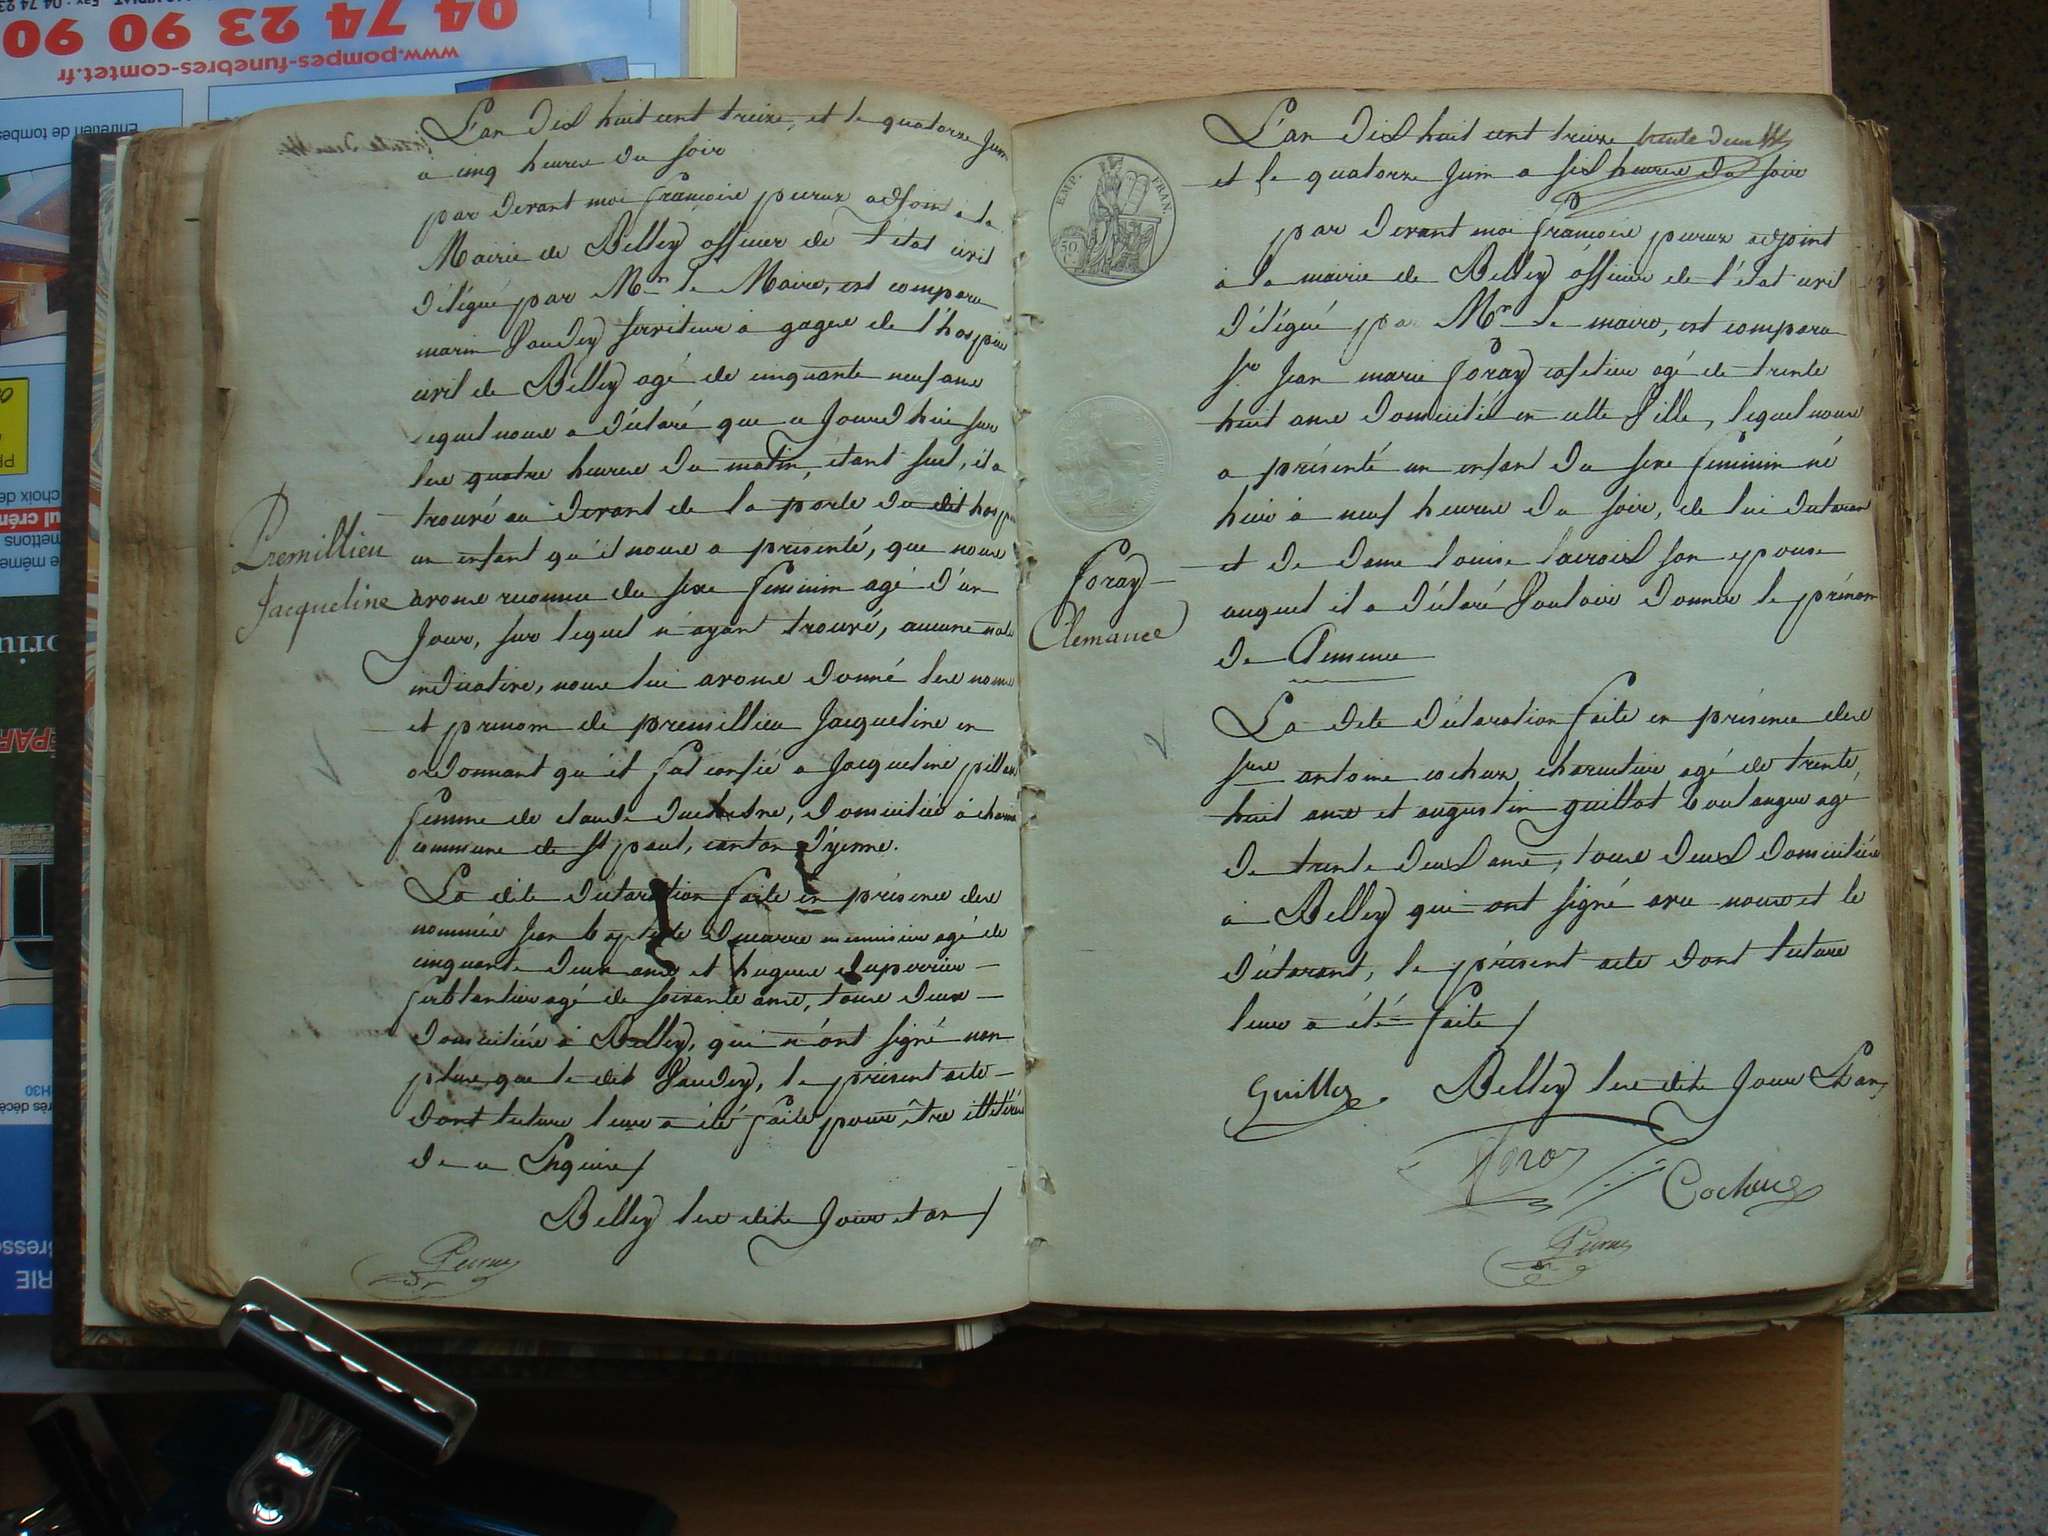 04 74 23 90 90
www.pompes-funebres-comtet.fr
Entretien de tombes
L'an dix huit cent treize, et le quatorze Juin
a cinq heures du soir
par devant moi françois peyrux adjoint à la
Mairie de Belley officier de l'état civil
délégué par Mr. le Maire, est comparu
marin Vaudey serviteur à gages de l'hospice
civil de Belley agé de cinquante neuf ans
lequel nous a déclaré que aJourdhui sur
les quatre heures du matin, étant seul, il a
trouvé au devant de la porte du dit hospice
un enfant qu'il nous a présenté, que nous
avons reconnu du sexe feminin agé d'un
Jour, sur lequel n'ayant trouvé, aucune note
indicative, nous lui avons donné les noms
et prenom de premillieu Jacqueline en
ordonnant qu'il fut confié a Jacqueline
femme de claude domiciliée à
commune de St paul, canton d'yenne.
La dite déclaration faite en présence des
nommés Jean baptiste Ducarre menuisier agé de
cinquante deux ans et hugues Dupoirier
ferblantier agé de soixante ans, tous deux
domiciliés à Belley, qui n'ont signé non
plus que le dit Vaudey, le présent acte
dont lecture leur a été faite pour être illitérés
de ce Enquis /
Belley les dits Jour et an /
Premillieu
Jacqueline
L'an dix huit cent treize trente deux
et le quatorze Juin a six heures du soir
par devant moi françois peyrux adjoint
à la mairie de Belley officier de l'état civil
délégué par Mr. le maire, est comparu
Sr Jean marie foray cafetier agé de trente
huit ans domicilié en cette Ville, lequel nous
a présenté un enfant du sexe feminin né
hier à neuf heures du soir, de lui déclarant
et de dame louise lacroix son epouse
auquel il a déclaré Vouloir donner le prénom
de Clemence
La dite déclaration faite en présence des
Srs antoine cochux, charcutier agé de trente
huit ans et augustin guillot boulanger agé
de trente deux ans, tous deux domiciliés
à Belley qui ont signé avec nous et le
déclarant, le présent acte dont lecture
leur a été faite /
Belley les dits Jour & an
EMP. FRAN.
50 C
foray
Clemance